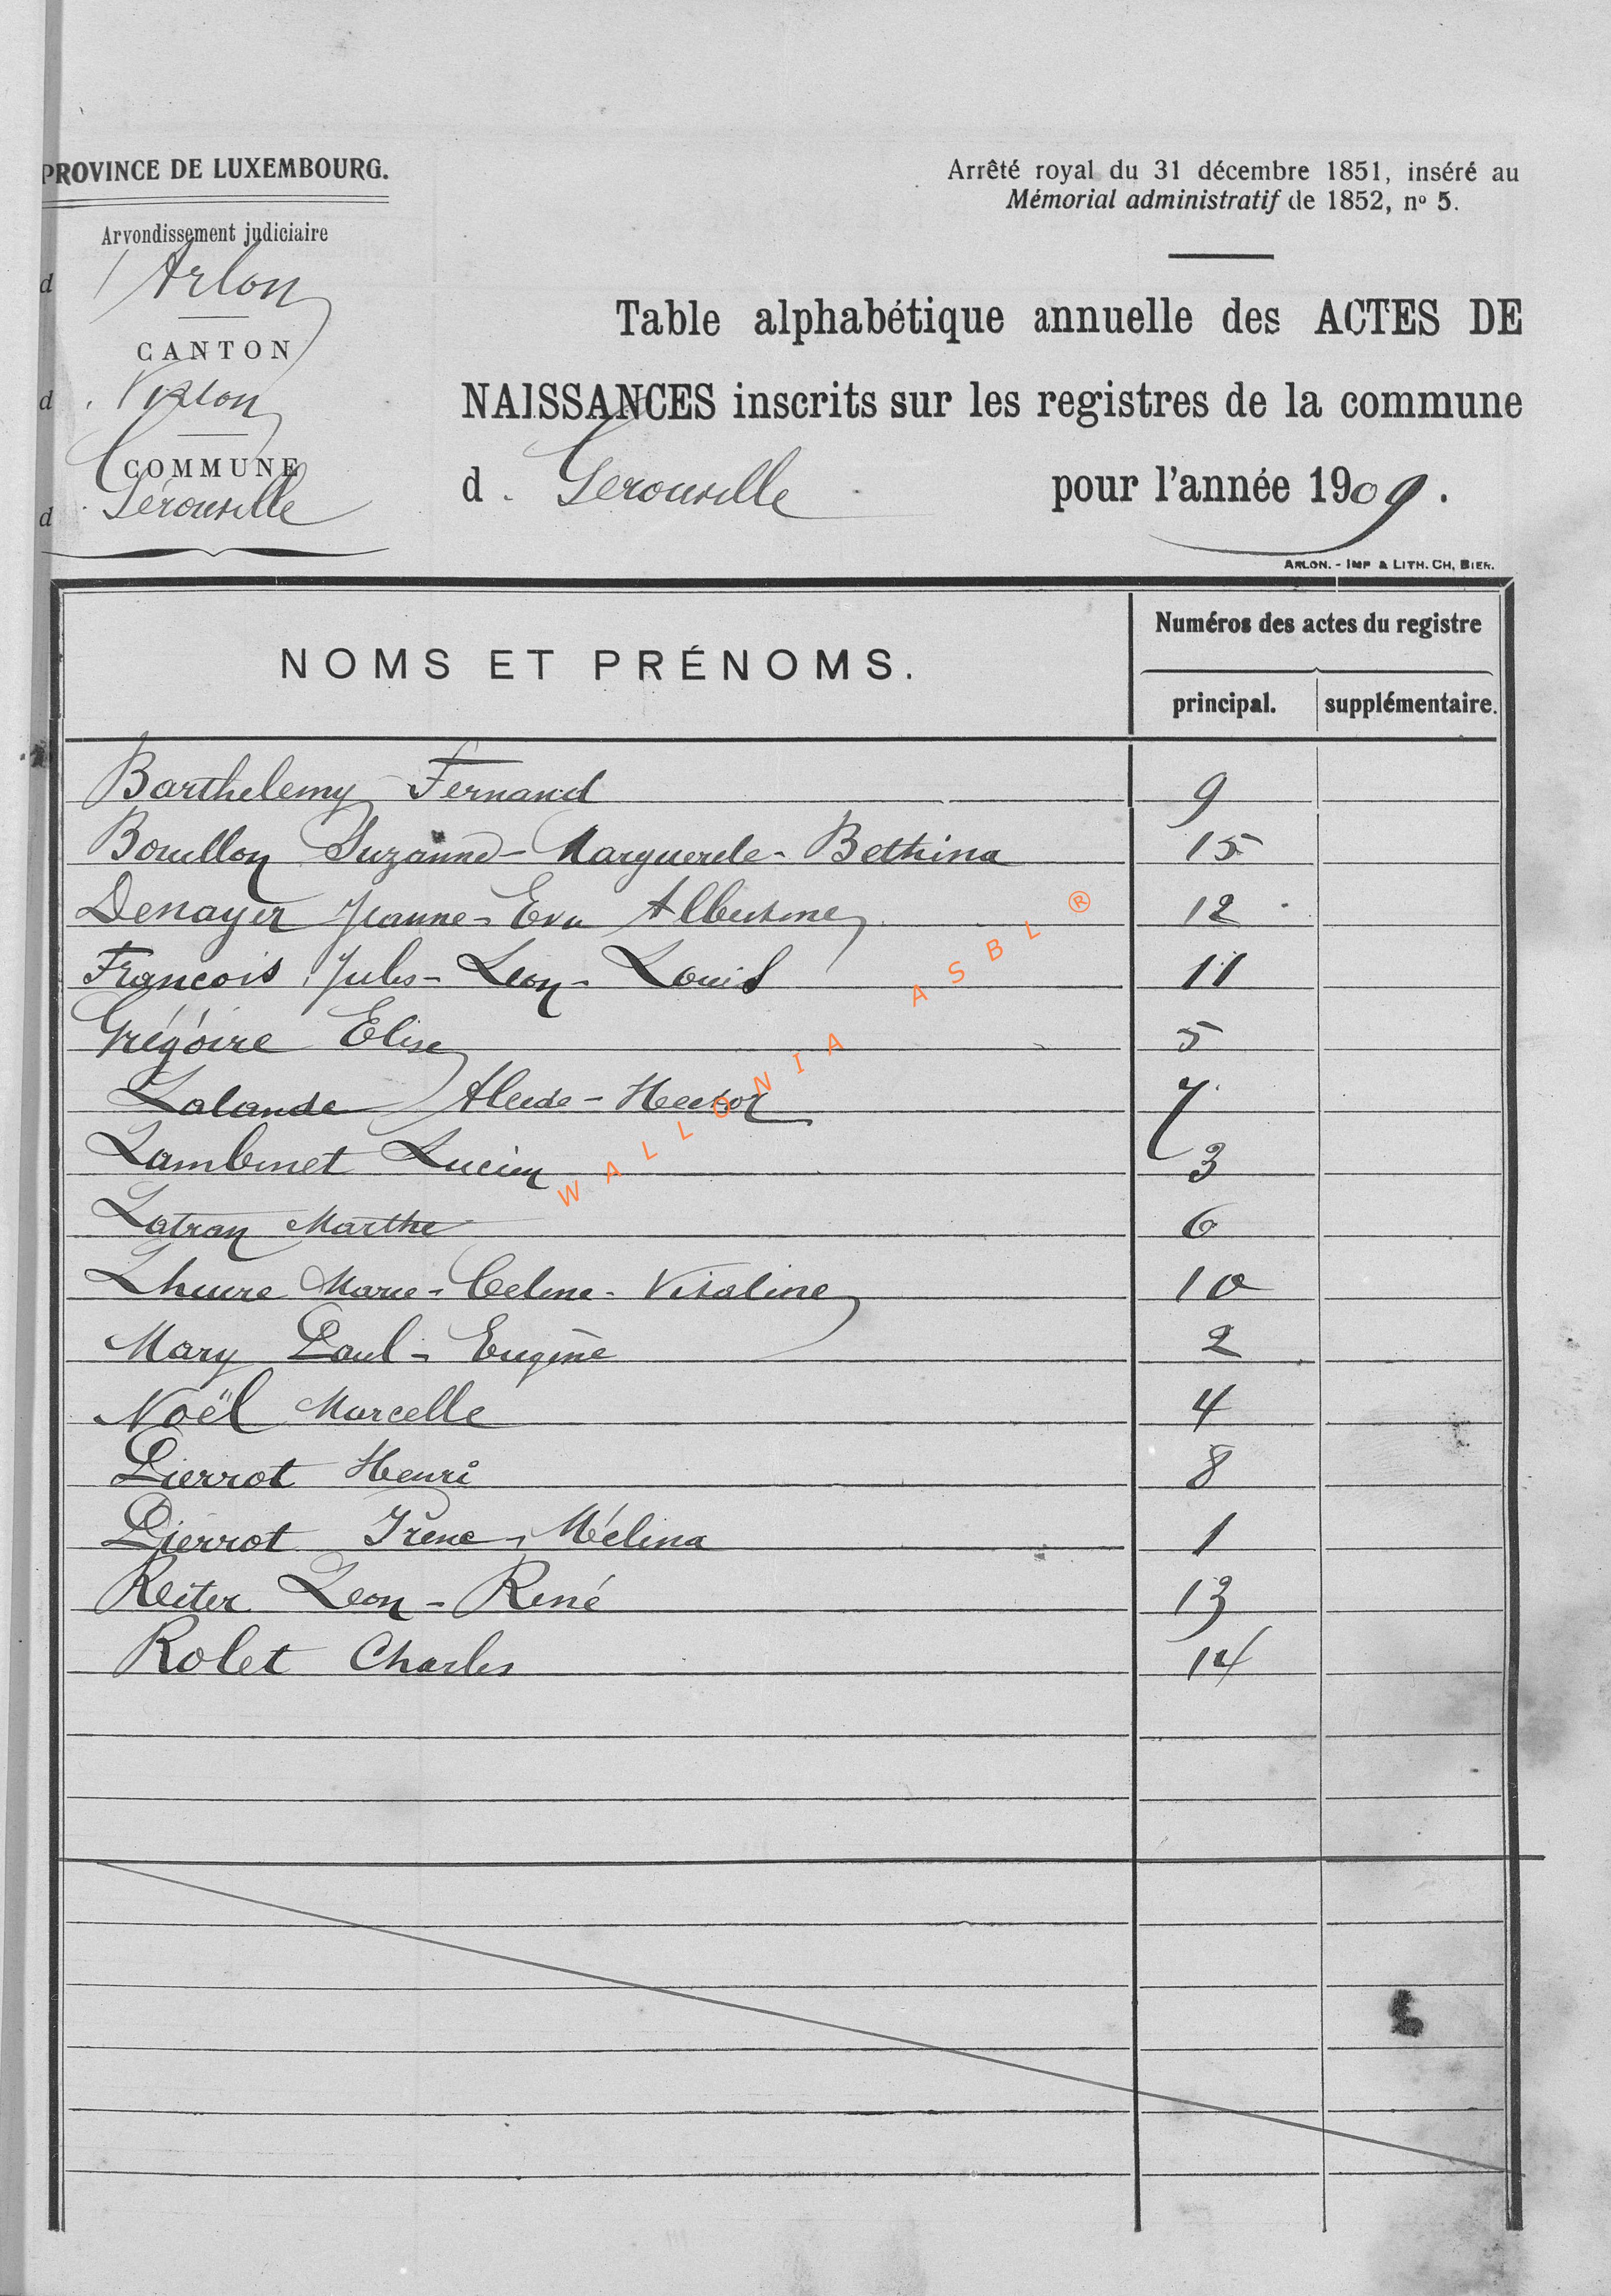 PROVINCE DE LUXEMBOURG.
Arvondissement judiciaire
d'Arlon
CANTON
d. Virton
COMMUNE
d. Gérouville
Arrêté royal du 31 décembre 1851, inséré au
Mémorial administratif de 1852, nº 5.
Table alphabétique annuelle des ACTES DE
NAISSANCES inscrits sur les registres de la commune
d. Gerouville pour l'année 1909.
ARLON. - IMP & LITH. CH. BIER.
NOMS ET PRÉNOMS.
Numéros des actes du registre
principal. supplémentaire.
Barthelemy Fernand 9
Bouillon Suzanne - Marguerite - Bethina 15
Denayer Jeanne - Eva Albertine 12
Francois Jules - Leon - Louis 11
Grégoire Elise 5
Lalande Alcide - Hector 7
Lambinet Lucien 3
Latran Marthe 6
Lheure Marie - Celine - Vitaline 10
Mary Paul - Eugène 2
Noël Marcelle 4
Pierrot Henri 8
Pierrot Irène - Mélina 1
Reiter Leon - René 13
Rolet Charles 14
WALLONIA ASBL ®